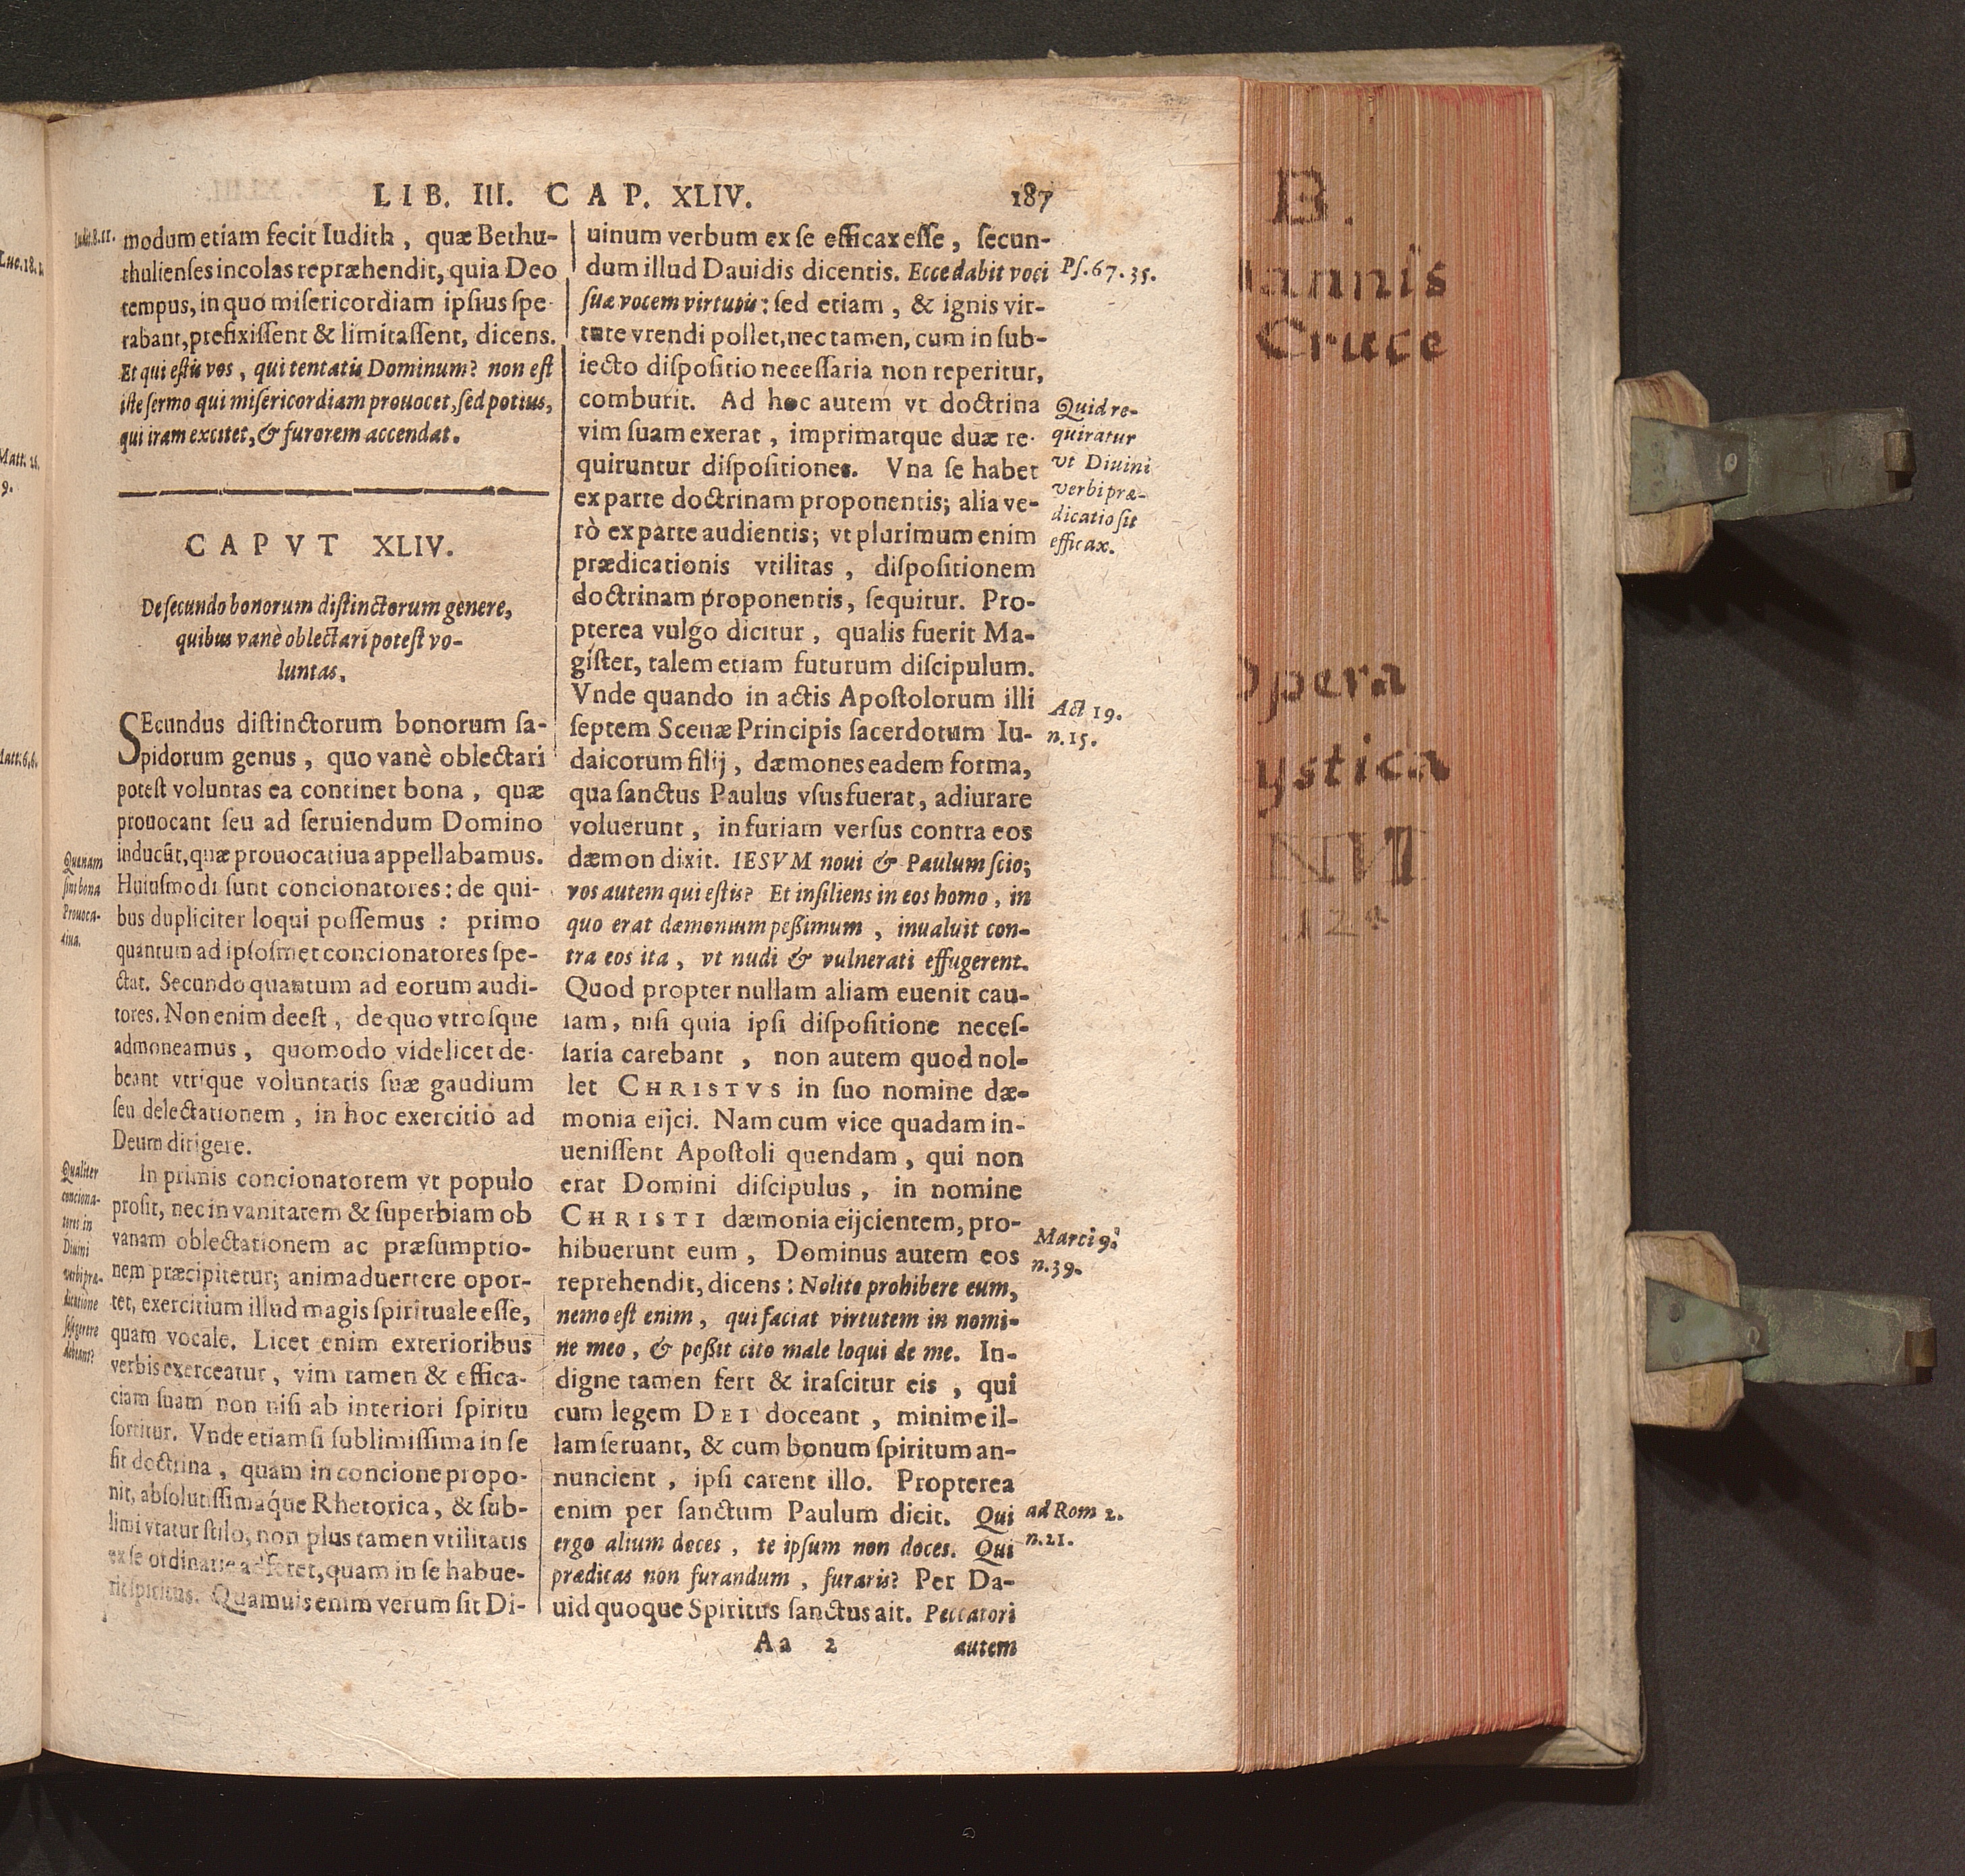 LIB. III. CAP. XLIV. 187
Iudit. 8. 11.
modum etiam fecit Iudith, quæ Bethu-
thulienſes incolas repræhendit, quia Deo
tempus, in quo miſericordiam ipſius ſpe-
rabant, prefixiſſent & limitaſſent, dicens.
Et qui eſtis vos, qui tentatis Dominum? non eſt
iſte ſermo qui miſericordiam prouocet, ſed potius,
qui iram excitet, & furorem accendat.
CAPVT XLIV.
De ſecundo bonorum diſtinctorum genere,
quibus vanè oblectari poteſt vo-
luntas.
SEcundus diſtinctorum bonorum ſa-
pidorum genus, quo vanè oblectari
poteſt voluntas ea continet bona, quæ
prouocant ſeu ad ſeruiendum Domino
inducũt, quæ prouocatiua appellabamus.
Huiuſmodi ſunt concionatores: de qui-
bus dupliciter loqui poſſemus: primo
quantum ad ipſoſmet concionatores ſpe-
ctat. Secundo quantum ad eorum audi-
tores. Non enim deeſt, de quo vtroſque
admoneamus, quomodo videlicet de-
beant vtrique voluntatis ſuæ gaudium
ſeu delectationem, in hoc exercitio ad
Deum dirigere.
Quænam
ſint bona
Prouoca-
tiua.
In primis concionatorem vt populo
proſit, nec in vanitatem & ſuperbiam ob
vanam oblectationem ac præſumptio-
nem præcipitetur; animaduertere opor-
tet, exercitium illud magis ſpirituale eſſe,
quam vocale. Licet enim exterioribus
verbis exerceatur, vim tamen & effica-
ciam ſuam non niſi ab interiori ſpiritu
ſortitur. Vnde etiamſi ſublimiſſima in ſe
ſit doctrina, quam in concione propo-
nit, abſolutiſſimáque Rhetorica, & ſub-
limi vtatur ſtilo, non plus tamen vtilitatis
ex ſe ordinarie adferet, quam in ſe habue-
rit ſpiritus. Quamuis enim verum ſit Di-
Qualiter
conciona-
tores in
Diuini
verbi præ-
dicatione
ſe gerere
debeant?
uinum verbum ex ſe efficax eſſe, ſecun-
dum illud Dauidis dicentis. Ecce dabit voci
ſuæ vocem virtutis: ſed etiam, & ignis vir-
tute vrendi pollet, nec tamen, cum in ſub-
iecto diſpoſitio neceſſaria non reperitur,
comburit. Ad hoc autem vt doctrina
vim ſuam exerat, imprimatque duæ re-
quiruntur diſpoſitiones. Vna ſe habet
ex parte doctrinam proponentis; alia ve-
rò ex parte audientis; vt plurimum enim
prædicationis vtilitas, diſpoſitionem
doctrinam proponentis, ſequitur. Pro-
pterea vulgo dicitur, qualis fuerit Ma-
giſter, talem etiam futurum diſcipulum.
Vnde quando in actis Apoſtolorum illi
ſeptem Sceuæ Principis ſacerdotum Iu-
daicorum filij, dæmones eadem forma,
qua ſanctus Paulus vſus fuerat, adiurare
voluerunt, in furiam verſus contra eos
dæmon dixit. IESVM noui & Paulum ſcio;
vos autem qui eſtis? Et inſiliens in eos homo, in
quo erat dæmonium peßimum, inualuit con-
tra eos ita, vt nudi & vulnerati effugerent.
Quod propter nullam aliam euenit cau-
ſam, niſi quia ipſi diſpoſitione neceſ-
ſaria carebant, non autem quod nol-
let CHRISTVS in ſuo nomine dæ-
monia eijci. Nam cum vice quadam in-
ueniſſent Apoſtoli quendam, qui non
erat Domini diſcipulus, in nomine
CHRISTI dæmonia eijcientem, pro-
hibuerunt eum, Dominus autem eos
reprehendit, dicens: Nolite prohibere eum,
nemo eſt enim, qui faciat virtutem in nomi-
ne meo, & poßit cito male loqui de me. In-
digne tamen fert & iraſcitur eis, qui
cum legem DEI doceant, minime il-
lam ſeruant, & cum bonum ſpiritum an-
nuncient, ipſi carent illo. Propterea
enim per ſanctum Paulum dicit. Qui
ergo alium doces, te ipſum non doces. Qui
prædicas non furandum, furaris? Per Da-
uid quoque Spiritus ſanctus ait. Peccatori
Aa 2 autem
Pſ. 67. 35.
Quid re-
quiratur
vt Diuini
verbi præ-
dicatio ſit
efficax.
Act 19.
n. 15.
Marci 9.
n. 39.
ad Rom 2.
n. 21.
Luc. 18. 1.
Matt. 26.
9.
Matt: 6, 6.
B.
annis
Cruce
Opera
ystica
NVI
12a